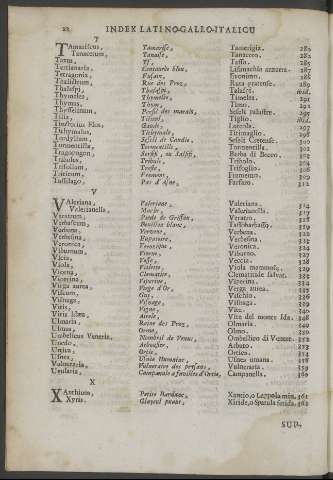 22 INDEX LATINO-GALLO-ITALICU
T
Tamariscus, Tamarisc, Tamerigia. 282
Tanacetum, Tanaise, Tanaceto. 282
Taxus, If, Tasso. 285
Tertianaria, Lisimachia azzurra. 287
Tetragonia, Fusain, Evonimo. 286
Thalictrum, Rue des Prez, Ruta pratense. 289
Thlaspi, Thalaspi, Talaspi. ibid.
Thymelea, Thymelée, Timelea. 291
Thymus, Thym, Timo. 292
Tilia, Tilleul, Tiglio. ibid.
Tithymalus, Tithymale, Titimaglio. 298
Tordylium, Seseli de Candie, Seseli Cretense. 300
Tormentilla, Tormentille, Tormentilla. 302
Tragopogon, Barba di Becco. 302
Tribulus, Tribule, Tribolo. 304
Trifolium, Trefle, Trifoglio. 306
Triticum, Froment, Frumento. 309
Tussilago, Pas d'Asne, Farfaro. 312
V
Valeriana, Valeriane, Valeriana. 314
Valerianella, Mache, Valerianella. 317
Veratrum, Veratro.
Verbascum, Bouillon blanc, Tassobarbasso.
Verbena, Verveine, Verbena. 322
Verbesina, Verbesina. 323
Veronica, Veronique, Veronica. 324
Viburnum, Viorne, Viburno. 327
Vicia, Vesse, Veccia. 328
Viola, Violette, Viola mammola. 329
Viorna, Clematite, Clematitide salvat. 333
Viperina, Viperine, Viperina. 334
Virga aurea, Verge d'Or, Verga aurea. 335
Viscum, Guy, Vischio. 336
Visnaga, Visnage, Visnaga. 339
Vitis, Vigne, Vite. 340
Vitis Idæa, Airelle, Vite del monte Ida. 348
Ulmaria, Reine des Prez, Ulmaria. 349
Ulmus, Orme, Olmo. 350
Umbelicus Veneris, Nombril de Venus, Ombellico di Venere. 352
Unedo, Arbousier, Arbuto. 353
Urtica, Ortie, Ortica. 354
Usnea, Usnée Humaine, Usnea umana. 358
Vulneraria, Vulneraire des païsans, Vulneraria. 359
Uvularia, Campanella. 360
X
Xanthium, Petite Bardane, Xantio, o Lappola min. 361
Xyris, Glayeul puant, Xiride, o Spatula fetida. 362
SUD-